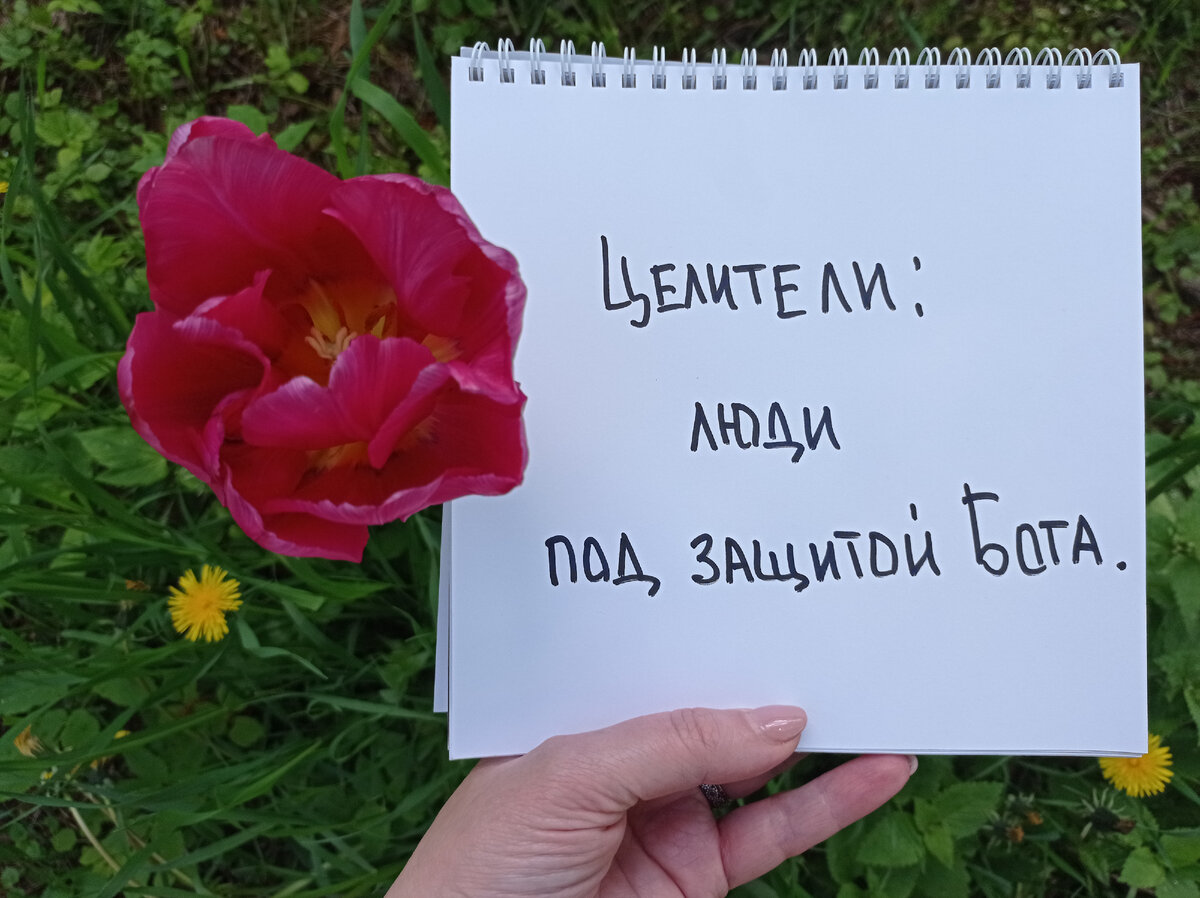 Целители:
люди
под защитой Бога.